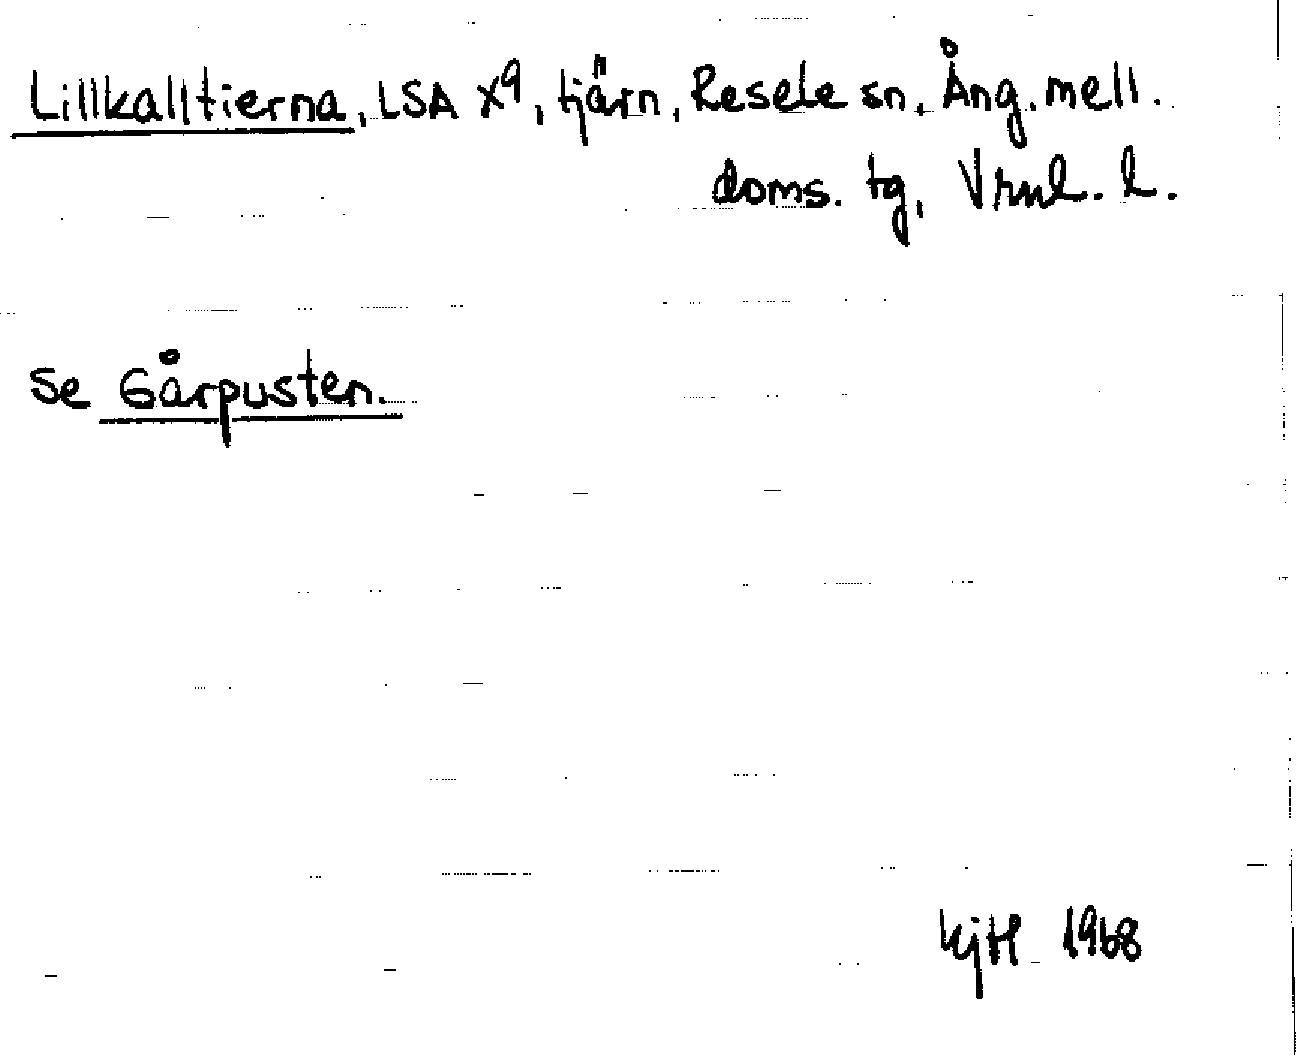 Lillkalltierna, LSA X9, tjärn, Resele sn, Ång. mell.
doms. tg, Vrnl. l.
Se Gårpusten.
KjH 1968